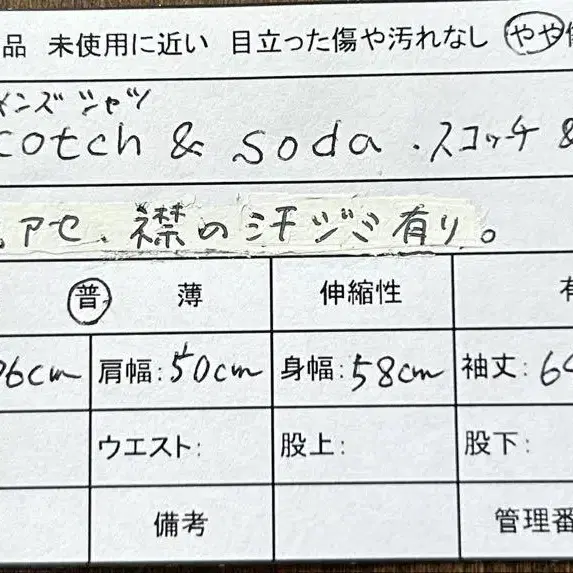 品 未使用に近い 目立った傷や汚れなし やや
メンズ シャツ
cotch & soda . スコッチ &
アセ、襟の汗ジミ有り。
普 薄 伸縮性 有
6cm 肩幅:50cm 身幅:58cm 袖丈:6
ウエスト: 股上: 股下:
備考 管理番